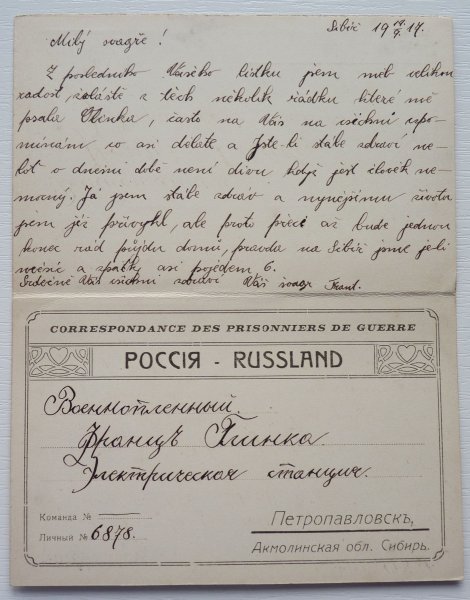 Sibiř 19 19/9 17.
Milý svagře!
Z posledního Vašeho lístku jsem měl velikou
radost, zvláště z těch několik řádků které mě
psala Olinka, často na Vás na všichni vzpo-
mínám co asi děláte a Jste-li stále zdraví ne-
boť o dnešní době není divu když jest člověk ne-
mocný. Já jsem stále zdráv a nynějšímu životu
jsem již přivykl, ale proto přeci až bude jednou
konec rád půjdu domů, pravda na Sibiř jsme jeli
měsíc a zpátk asi pojedem 6.
Srdečně Vás všichni zdraví Váš svagr Frant.
CORRESPONDANCE DES PRISONNIERS DE GUERRE
РОССІЯ - RUSSLAND
Военноплѣнный.
Францъ Ягинка.
Электрическая станція.
Команда №
Личный № 6878.
Петропавловскъ,
Акмолинская обл. Сибирь.